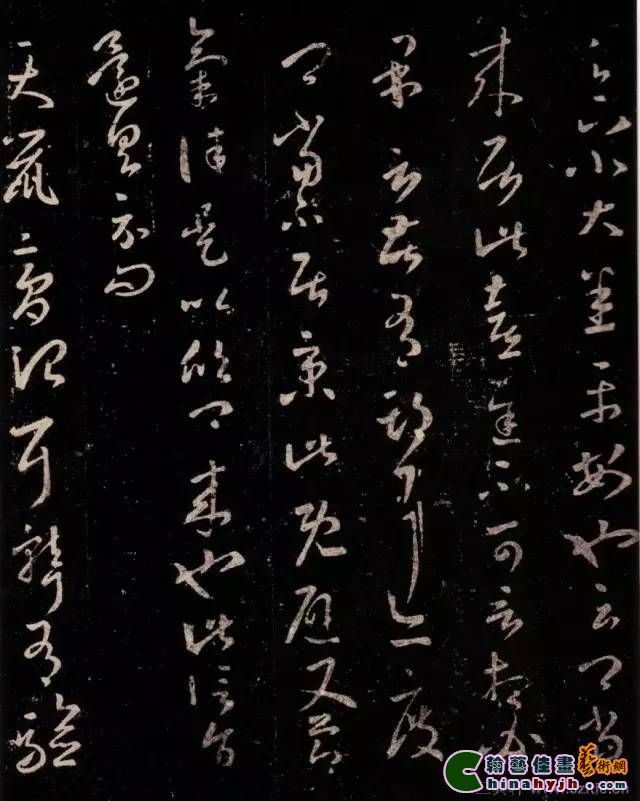 足下小大悉平安也云卿當
來居此喜遲不可言想必
果言告有期耳亦度
卿當不居京此既避又節
氣佳是以欣卿來也此信旨
還具示問
天鼠膏治耳聾有驗
翰藝佳畫藝術網
Chinahyjh.com